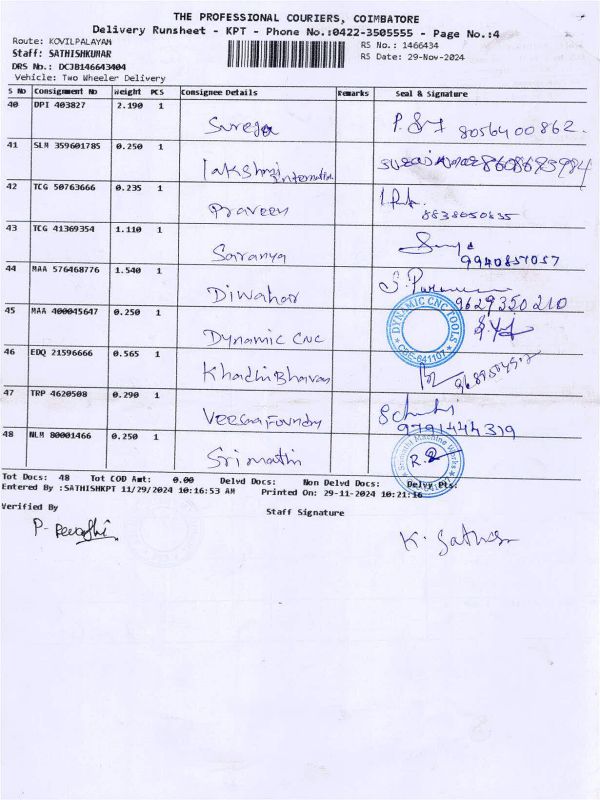 THE PROFESSIONAL COURIERS, COIMBATORE
Delivery Runsheet - KPT - Phone No.:0422-3505555 - Page No.:4
Route: KOVILPALAYAM
RS No.: 1466434
Staff: SATHISHKUMAR
RS Date: 29-Nov-2024
DRS No.: DCJB146643404
Vehicle: Two Wheeler Delivery
S No Consignment No Weight PCS Consignee Details Remarks Seal & Signature
40 DPI 403827 2.190 1
8056400862.
41 SLM 359601785 0.250 1
Lakshmi International
42 TCG 50763666 0.235 1
Praveen
8838050835
43 TCG 41369354 1.110 1
Saranya
9940857057
44 MAA 576468776 1.540 1
Diwahar
9629350210
45 MAA 400045647 0.250 1
Dynamic CNC
DYNAMIC CNC TOOLS
CBE-641107
46 EDQ 21596666 0.565 1
Khadhi Bhavan
47 TRP 4620508 0.290 1
Veesaa Foundry
9791444319
48 NLM 80001466 0.250 1
Srimathi
Srimathi Machine Works
Tot Docs: 48 Tot COD Amt: 0.00 Delvd Docs: Non Delvd Docs: Delvy Pts:
Entered By :SATHISHKPT 11/29/2024 10:16:53 AM Printed On: 29-11-2024 10:21:16
Verified By
Staff Signature
P. Revathi
K. Sathes